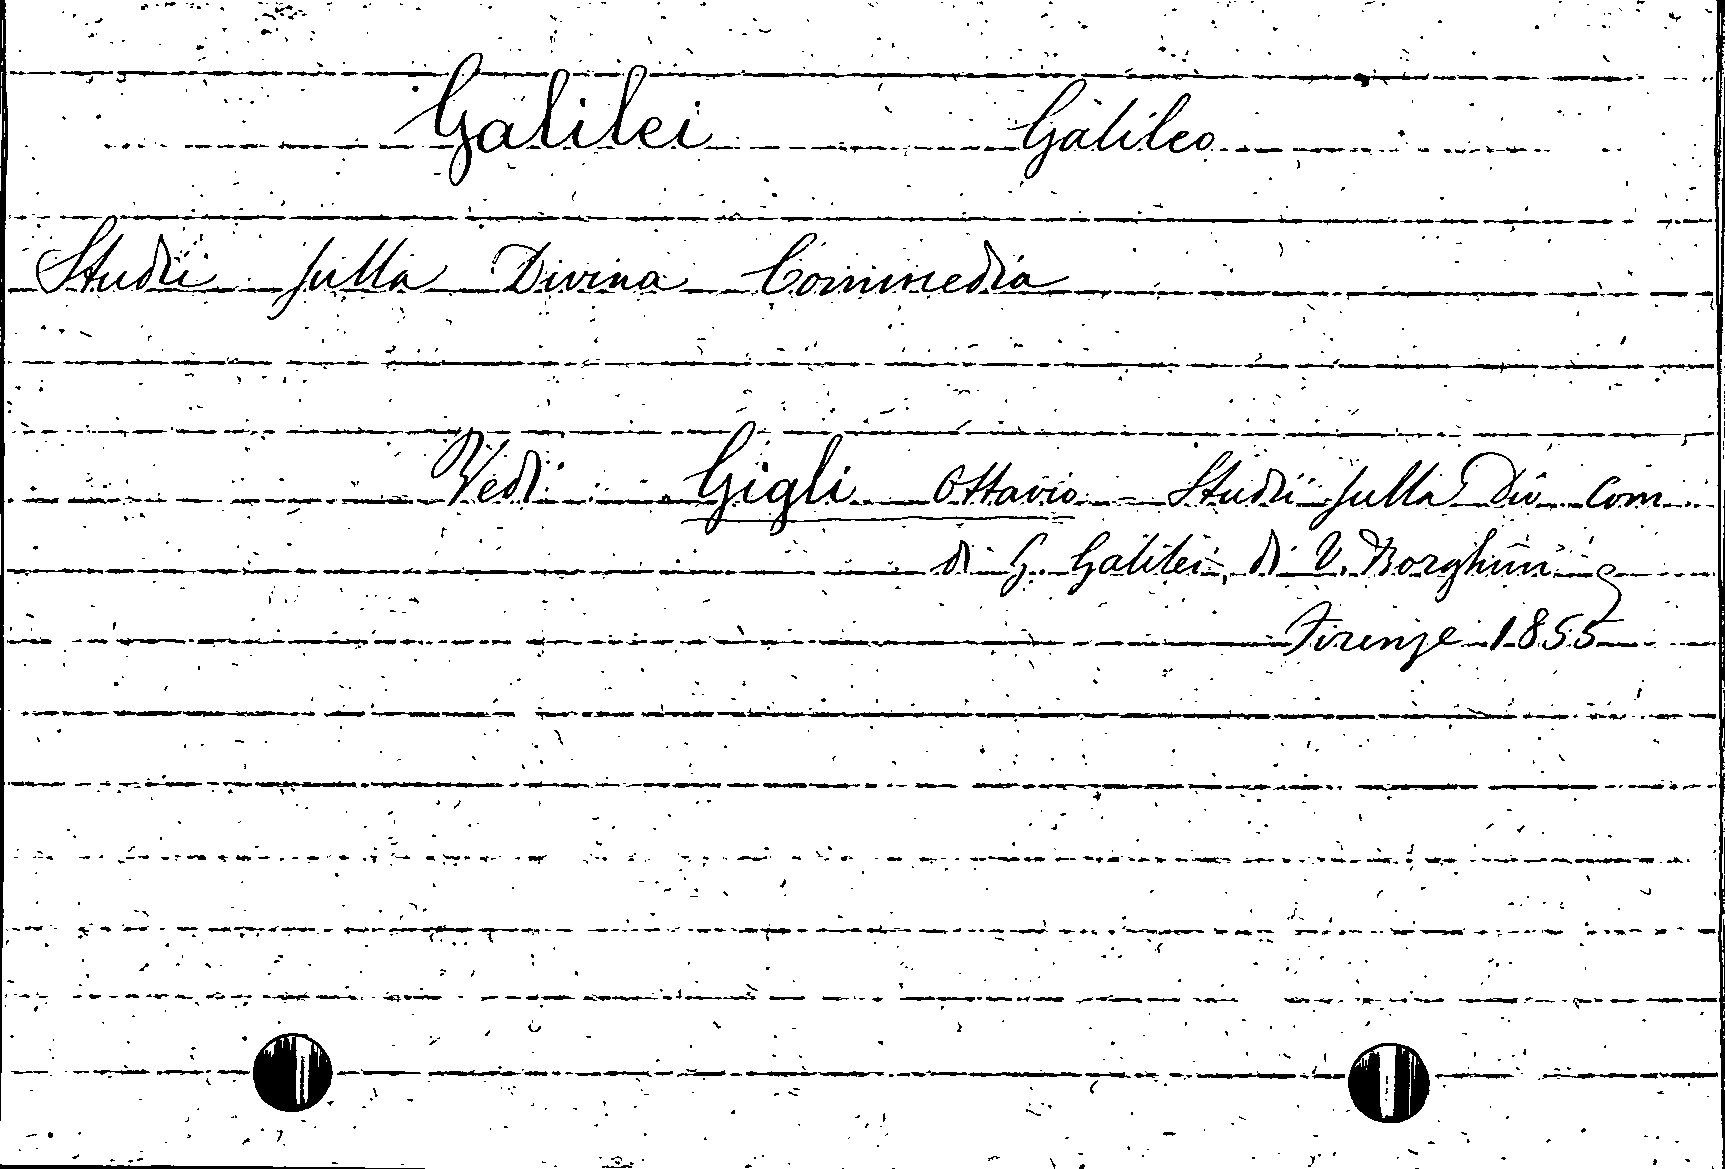 Galilei Galileo
Studii sulla Divina Commedia
Vedi: Gigli Ottavio - Studii sulla Div Com
di G. Galilei, di V. Borghini
Firenze 1855